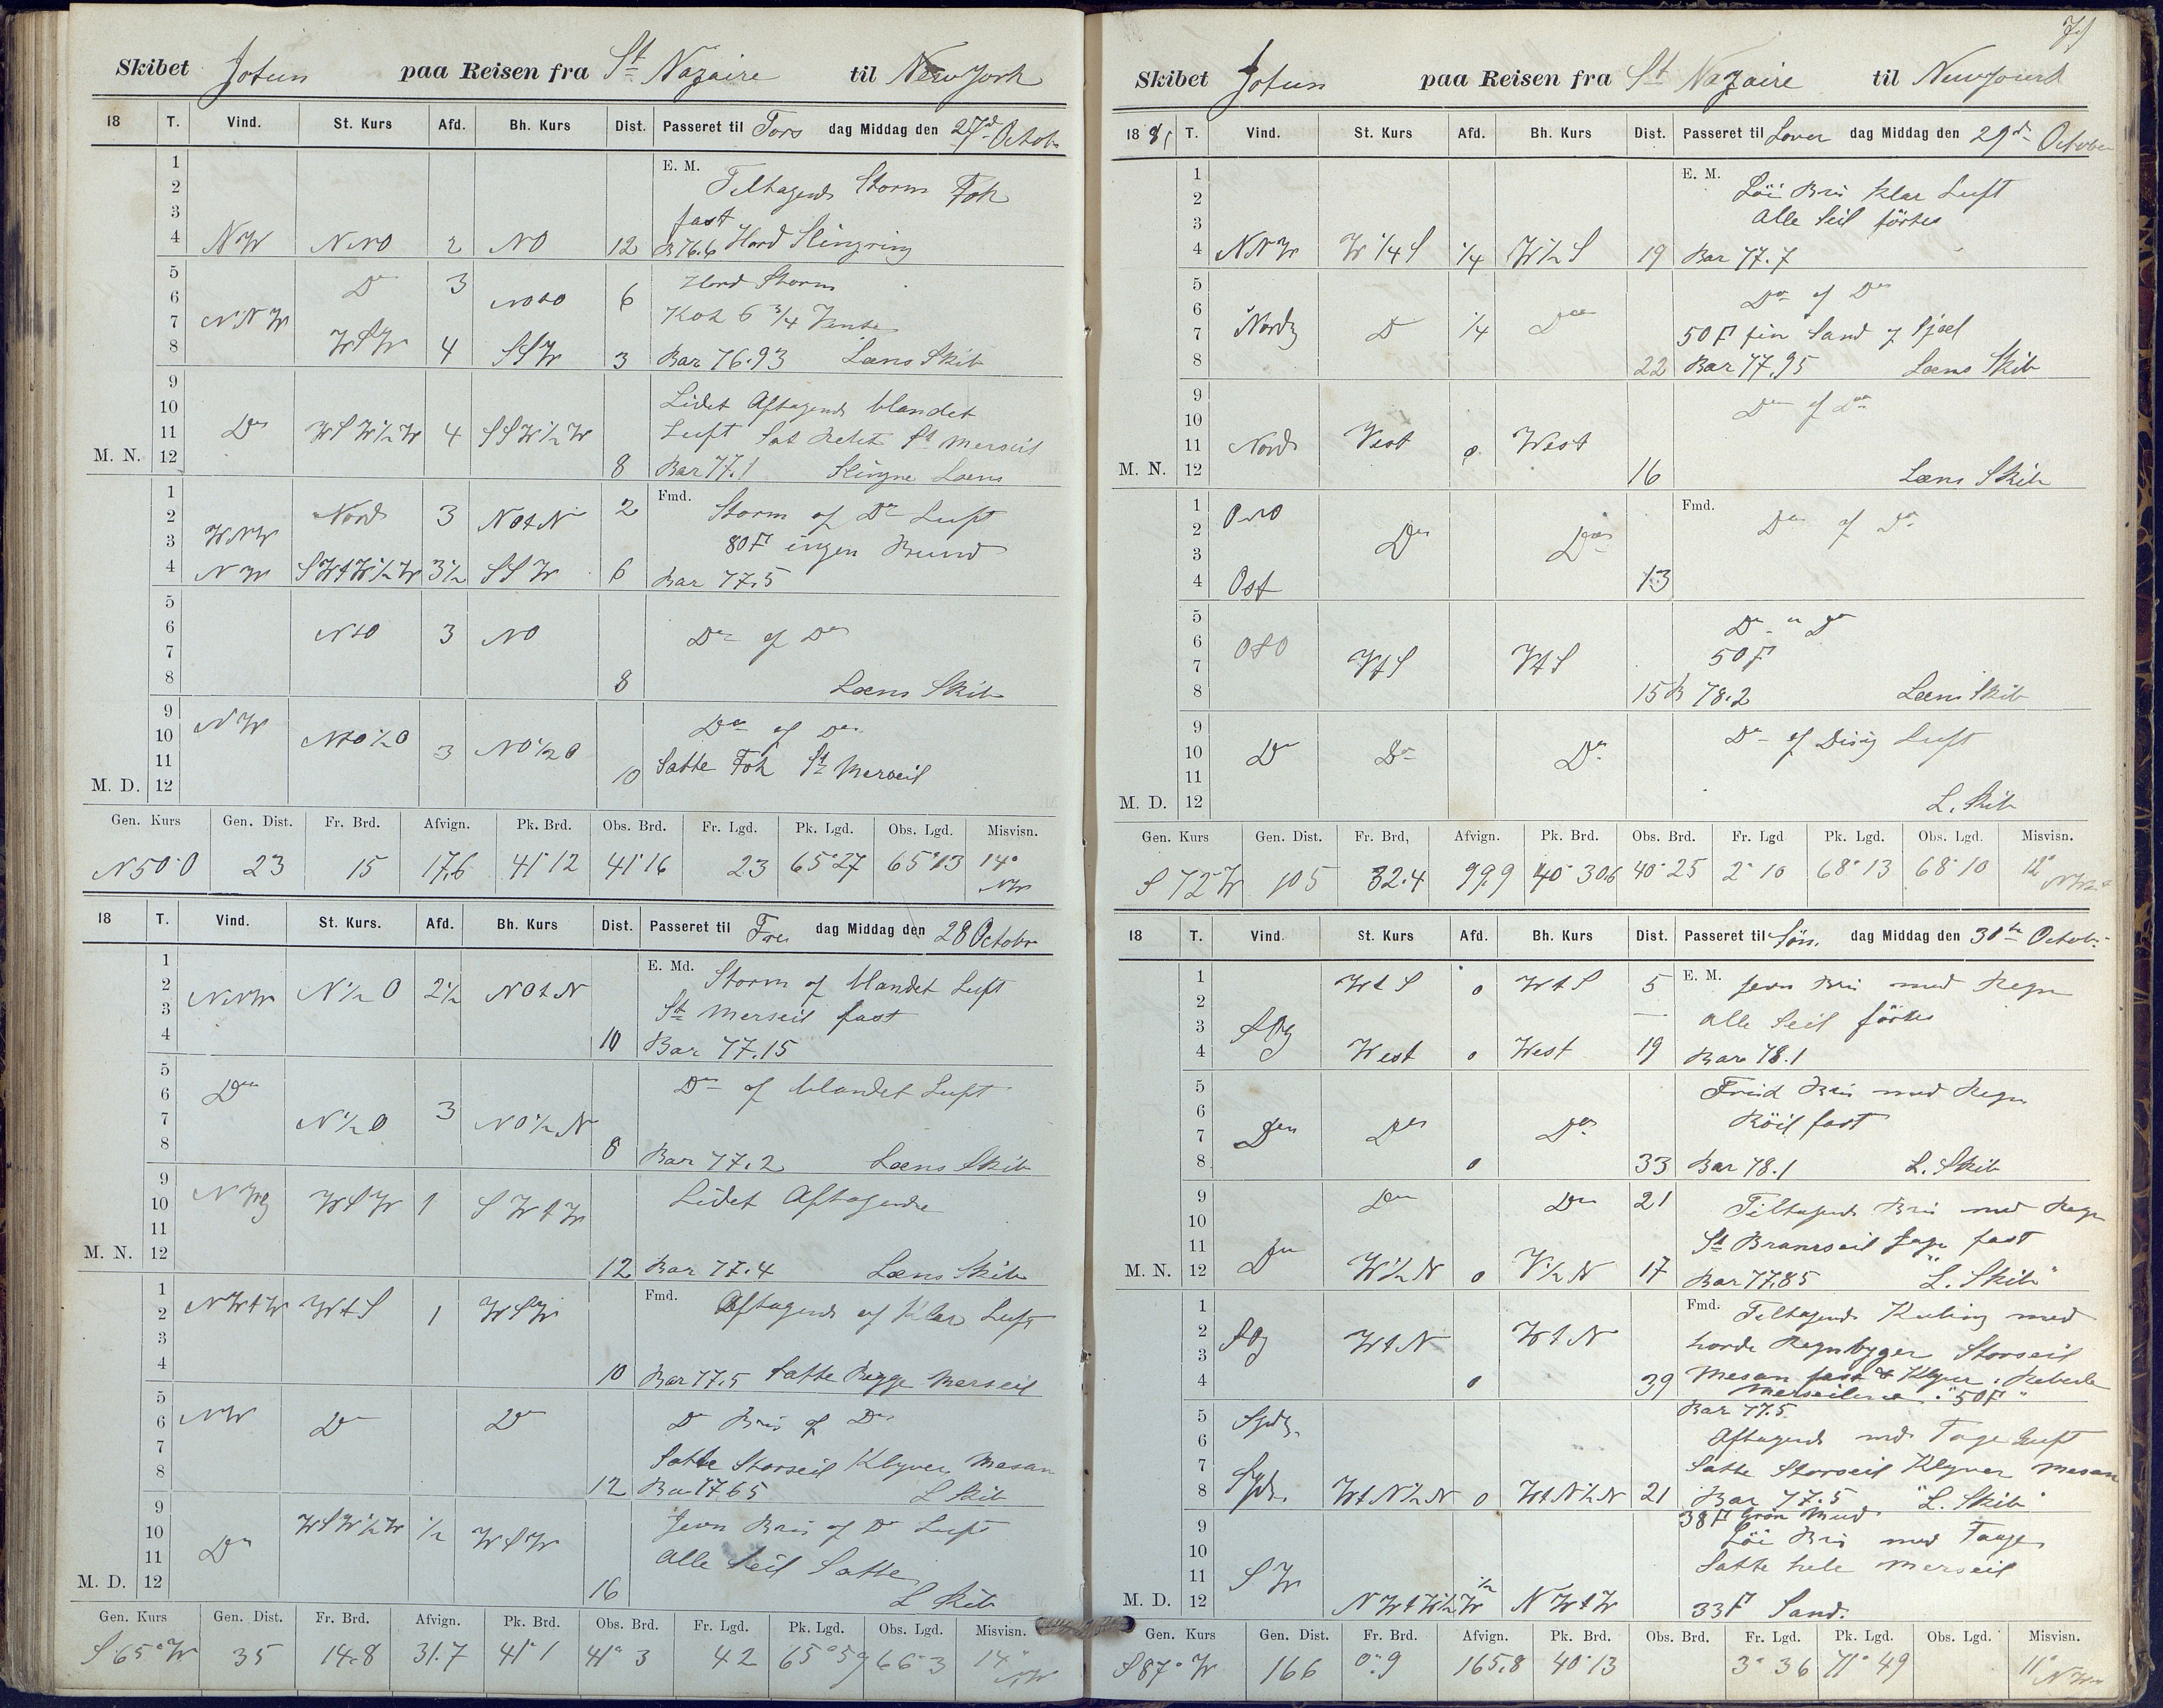 Skibet Jotun paa Reisen fra St Nazaire til New York
18 T. Vind. St. Kurs Afd. Bh. Kurs Dist. Passeret til Tors dag Middag den 27d Octob
1 E. M.
2 Tiltagende Storm Fok
3 fast
4 NW NNO 2 NO 12 B 76.6 Hard Slingring
5 Do 3 Hard Storm
6 NOtO 6
7 NNW Kok 6 3/4 Vente
8 WSW 4 SSW 3 Bar 76.93 Læns Skib
9 Lidet Aftagende blandet
10
11 Do WSW½W 4 SSW½W Luft Sat Rebet St Merseil
M. N. 12 8 Bar 77.1 Slingne Læns
1 Fmd.
2 Nord 3 NOtN 2 Storm og Do Luft
3 WNW 80 F ingen Bund
4 NW SWtW½W 3½ SSW 6 Bar 77.5
5
6 NtO 3 NO Do og Do
7
8 8 Læns Skib
9 NW Do og Do
10 NtO½O 3 NO½O
11 Satte Fok St Merseil
M. D. 12 10
Gen. Kurs Gen. Dist. Fr. Brd. Afvign. Pk. Brd. Obs. Brd. Fr. Lgd. Pk. Lgd. Obs. Lgd. Misvisn.
N50°O 23 15 17,6 41°12 41°16 23 65°27 65°13 14° NW
18 T. Vind. St. Kurs. Afd. Bh. Kurs Dist. Passeret til Fre dag Middag den 28 Octobr
1 E. Md.
2 NNW N½O 2½ NOtN Storm og blandet Luft
3 St Merseil fast
4 10 Bar 77.15
5
6 Do Do og blandet Luft
7 N½O 3 NO½N
8 8 Bar 77.2 Læns Skib
9
10 NWlg WSW 1 SWtW Lidet Aftagende
11
M. N. 12 12 Bar 77.4 Læns Skib
1 Fmd.
2 NWtW WtS 1 WSW Aftagende og Klar Luft
3
4 10 Bar 77.5 Satte Begge Merseil
5
6 NW Do Do Do Bris og Do
7 Satte Storseil Klyver Mesan
8 12 Bar 77 65 L Skib
9
10 WSW½W ½ WSW Jevn Bris og Do Luft
11 Do alle Seil Satte
M. D. 12 16 L Skib
Gen. Kurs Gen. Dist. Fr. Brd. Afvign. Pk. Brd. Obs. Brd. Fr. Lgd. Pk. Lgd. Obs. Lgd. Misvisn.
S65°W 35 14.8 31.7 41°1 41°3 42 65°59 66°3 14° NW
Skibet Jotun paa Reisen fra St Nazaire til New
18 81 T. Vind. St. Kurs Afd. Bh. Kurs Dist. Passeret til Lover dag Middag den 29de October
1 E. M.
2 Löi Bris Klar Luft
3 alle Seil förtes
4 NNW W¼S ¼ W½S 19 Bar 77.7
5
6 Do og Do
7 Nordlg Do ¼ Do 50 F fin Sand og Sjæl
8 22 Bar 77.95 Læns Skib
9
10 Do og Do
11 Nord Vest 0 West
M. N. 12 16 Læns Skib
1 Fmd.
2 ONO Do og Do
3 Do Do
4 Ost 13
5
6 OtO Do " Do
7 WtS WtS 50 F
8 15 B 78.2 Læns Skib
9
10 Do Do Do Do og Disig Luft
11
M. D. 12 L. Skib
Gen. Kurs Gen. Dist. Fr. Brd, Afvign. Pk. Brd. Obs. Brd. Fr. Lgd Pk. Lgd. Obs. Lgd. Misvisn.
S72°W 105 32.4 99.9 40°30.6 40°25 2°10 68°13 68°10 12°
18 T. Vind. St. Kurs Afd. Bh. Kurs Dist. Passeret til Sön. dag Middag den 30te Octob.
1 WtS 0 WtS 5 E. M. Jevn Bris med Regn
2
3 alle Seil förtes
4 West 0 West 19 Bar 78.1
5 Frisk Bris med Regn
6
7 Do Do Do Röil fast
8 0 33 Bar 78.1 L. Skib
9 Do Do 21 Tiltagende Bris med Regn
10
11 Do St Bramseil Jager fast
M. N. 12 W½N 0 V½N 17 Bar 77.85 "L. Skib"
1 Fmd. Tiltagende Kuling med
2 WtN WtN
3 harde Regnbyger Storseil
4 0 39 Mesan fast & Klyver. Rebede
Merseilene. "50 F"
5 Sydlg. Bar 77.5
6 Aftagende med Tage Luft
7 Satte Storseil Klyver Mesan
8 Syd. WtN½N 0 WtN½N 21 Bar 77.5 "L. Skib"
9 38 F Grön Mud
10 Löi Bris med Taage
11 SW Satte hele Merseil
M. D. 12 NWtW½W ½ NWtW 33 F Sand.
Gen. Kurs Gen. Dist. Fr. Brd. Afvign. Pk. Brd. Obs. Brd. Fr. Lgd. Pk. Lgd. Obs. Lgd. Misvisn.
S87°W 166 0°.9 165.8 40°13 3°36 71°49 11°